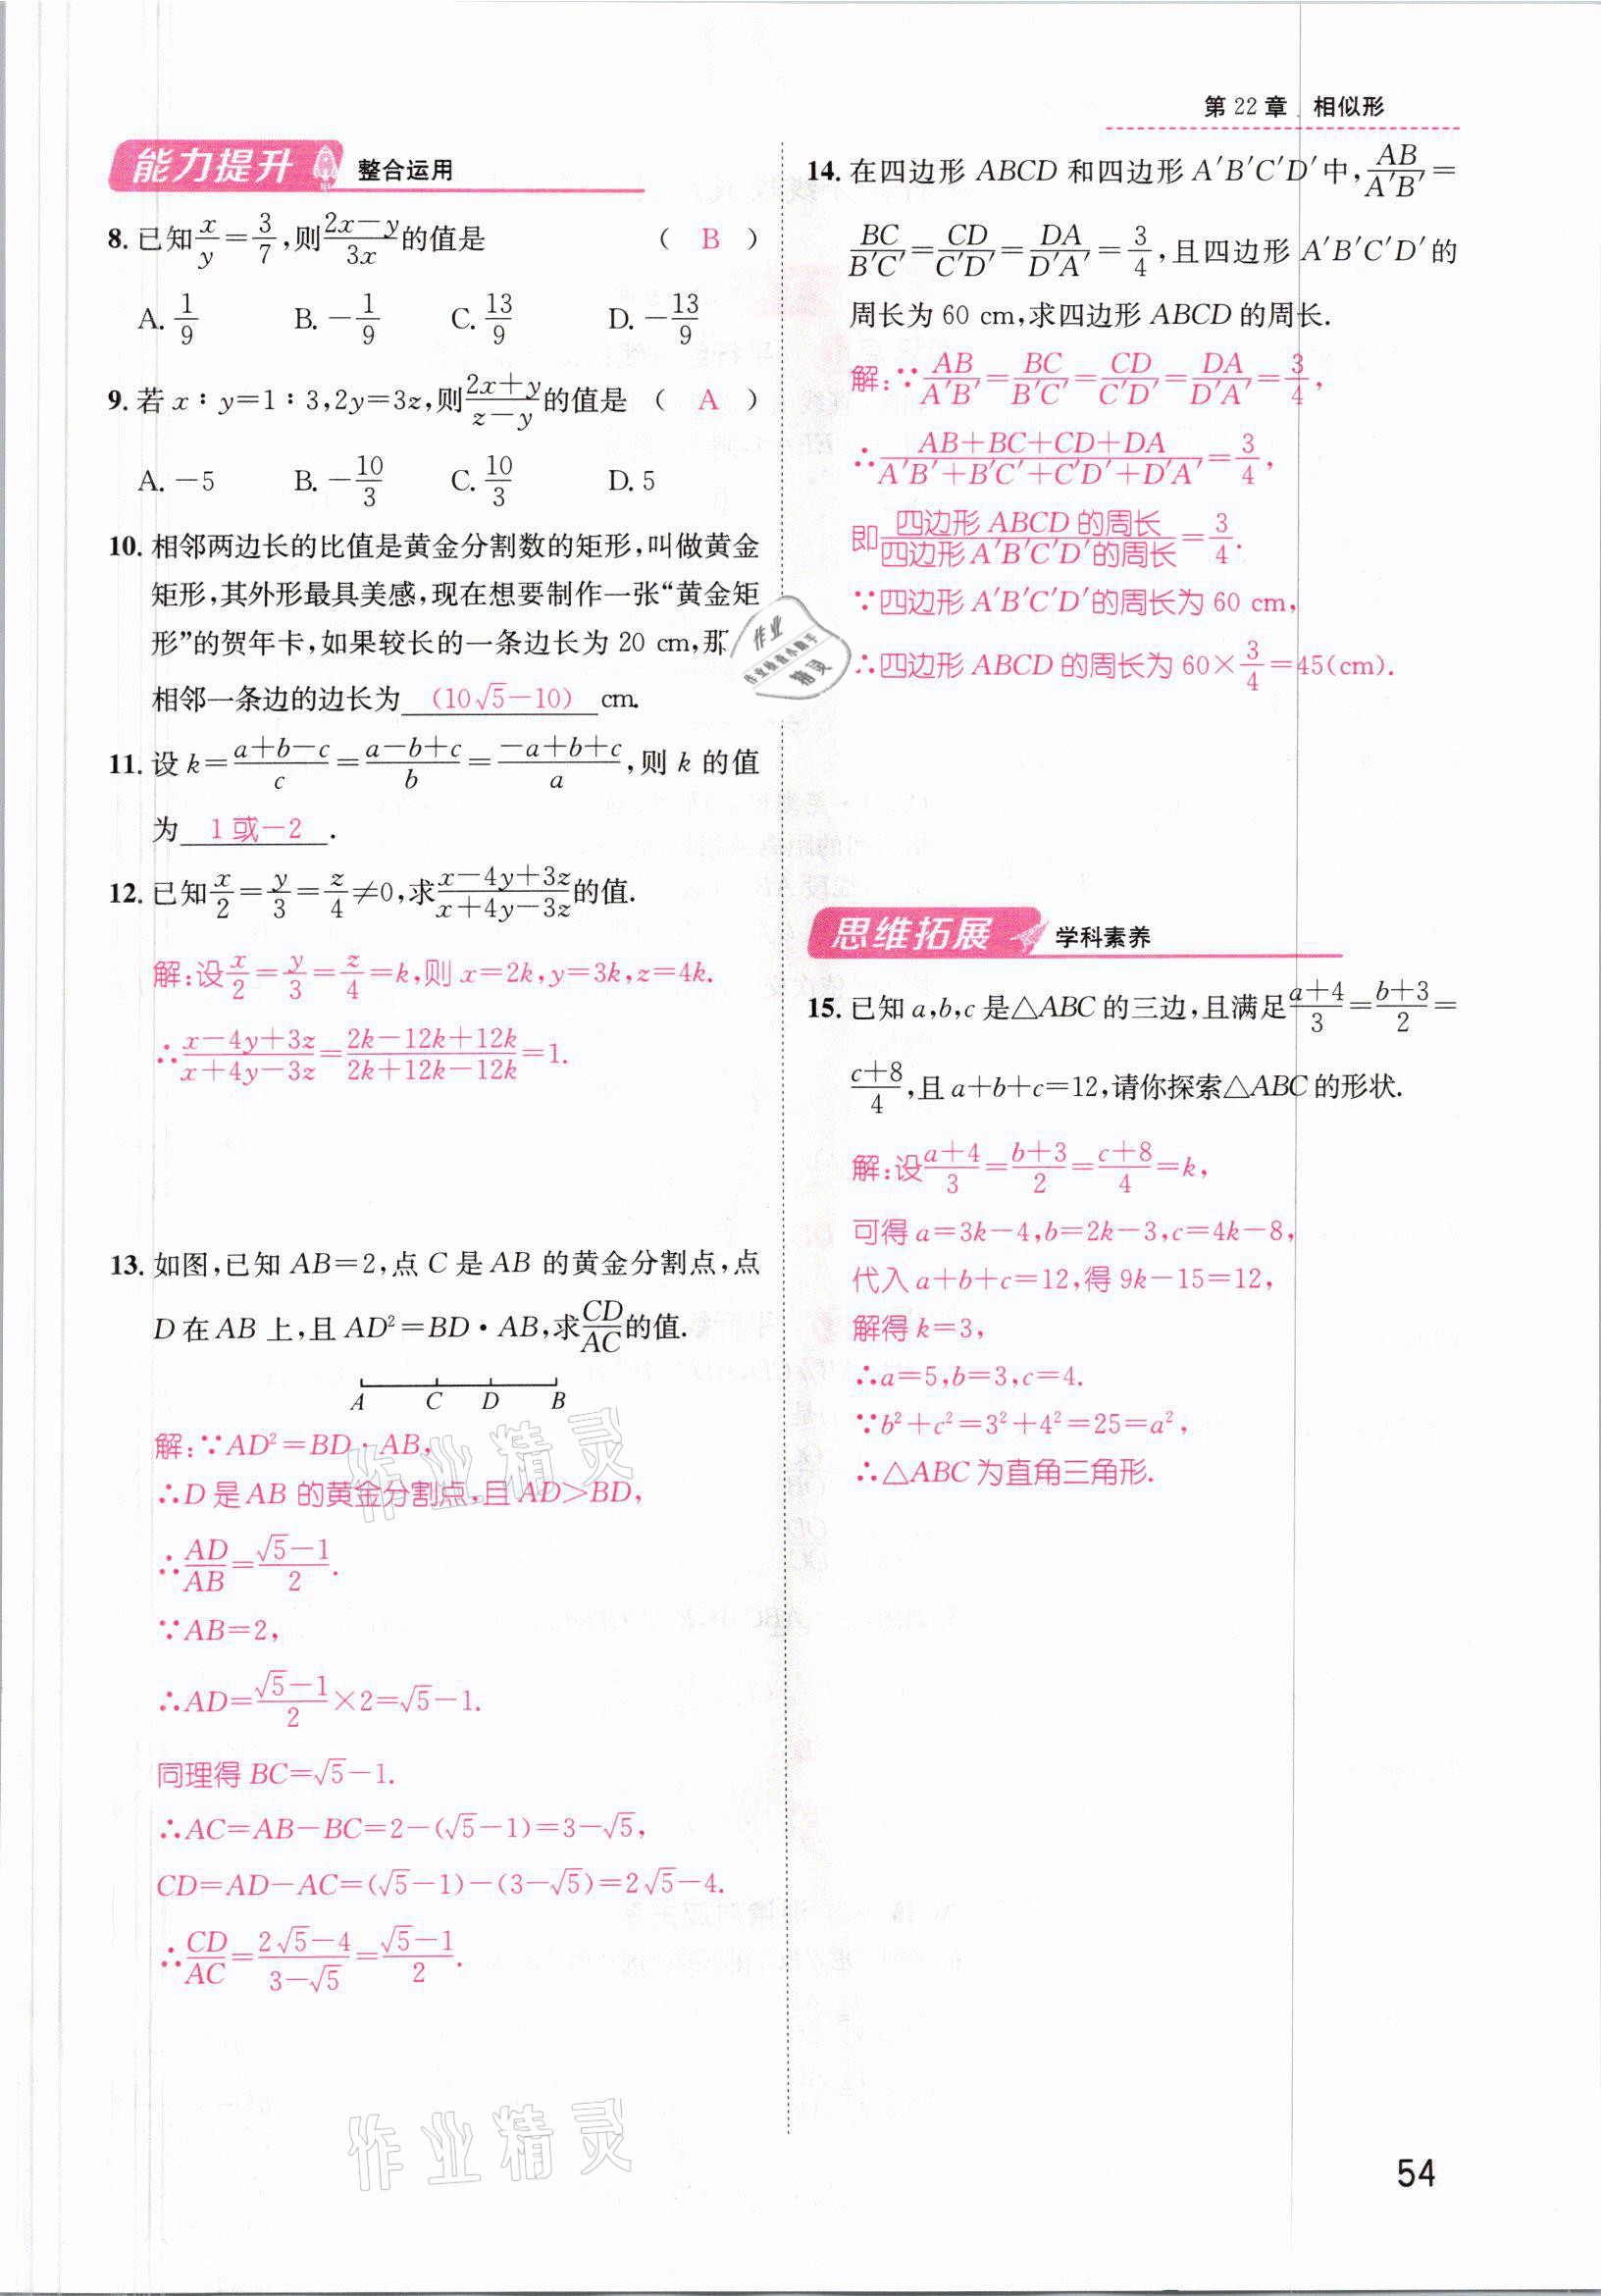 第 22 章 相似形
能力提升 整合运用
8. 已知x/y=3/7,则(2x-y)/3x的值是 ( B )
A. 1/9 B. -1/9 C. 13/9 D. -13/9
9. 若 x∶y=1∶3,2y=3z,则(2x+y)/(z-y)的值是 ( A )
A. -5 B. -10/3 C. 10/3 D. 5
10. 相邻两边长的比值是黄金分割数的矩形,叫做黄金
矩形,其外形最具美感,现在想要制作一张“黄金矩
形”的贺年卡,如果较长的一条边长为 20 cm,那
相邻一条边的边长为 (10√5-10) cm.
11. 设 k=(a+b-c)/c=(a-b+c)/b=(-a+b+c)/a,则 k 的值
为 1 或-2 .
12. 已知x/2=y/3=z/4≠0,求(x-4y+3z)/(x+4y-3z)的值.
解:设x/2=y/3=z/4=k,则 x=2k,y=3k,z=4k.
∴(x-4y+3z)/(x+4y-3z)=(2k-12k+12k)/(2k+12k-12k)=1.
13. 如图,已知 AB=2,点 C 是 AB 的黄金分割点,点
D 在 AB 上,且 AD²=BD·AB,求CD/AC的值.
A C D B
解:∵AD²=BD·AB,
∴D 是 AB 的黄金分割点,且 AD>BD,
∴AD/AB=(√5-1)/2.
∵AB=2,
∴AD=(√5-1)/2×2=√5-1.
同理得 BC=√5-1.
∴AC=AB-BC=2-(√5-1)=3-√5,
CD=AD-AC=(√5-1)-(3-√5)=2√5-4.
∴CD/AC=(2√5-4)/(3-√5)=(√5-1)/2.
14. 在四边形 ABCD 和四边形 A′B′C′D′中,AB/A′B′=
BC/B′C′=CD/C′D′=DA/D′A′=3/4,且四边形 A′B′C′D′的
周长为 60 cm,求四边形 ABCD 的周长.
解:∵AB/A′B′=BC/B′C′=CD/C′D′=DA/D′A′=3/4,
∴(AB+BC+CD+DA)/(A′B′+B′C′+C′D′+D′A′)=3/4,
即四边形 ABCD 的周长/四边形 A′B′C′D′的周长=3/4.
∵四边形 A′B′C′D′的周长为 60 cm,
∴四边形 ABCD 的周长为 60×3/4=45(cm).
思维拓展 学科素养
15. 已知 a,b,c 是△ABC 的三边,且满足(a+4)/3=(b+3)/2=
(c+8)/4,且 a+b+c=12,请你探索△ABC 的形状.
解:设(a+4)/3=(b+3)/2=(c+8)/4=k,
可得 a=3k-4,b=2k-3,c=4k-8,
代入 a+b+c=12,得 9k-15=12,
解得 k=3,
∴a=5,b=3,c=4.
∵b²+c²=3²+4²=25=a²,
∴△ABC 为直角三角形.
作业
作业检查小助手
精灵
作业精灵
作业精灵
54